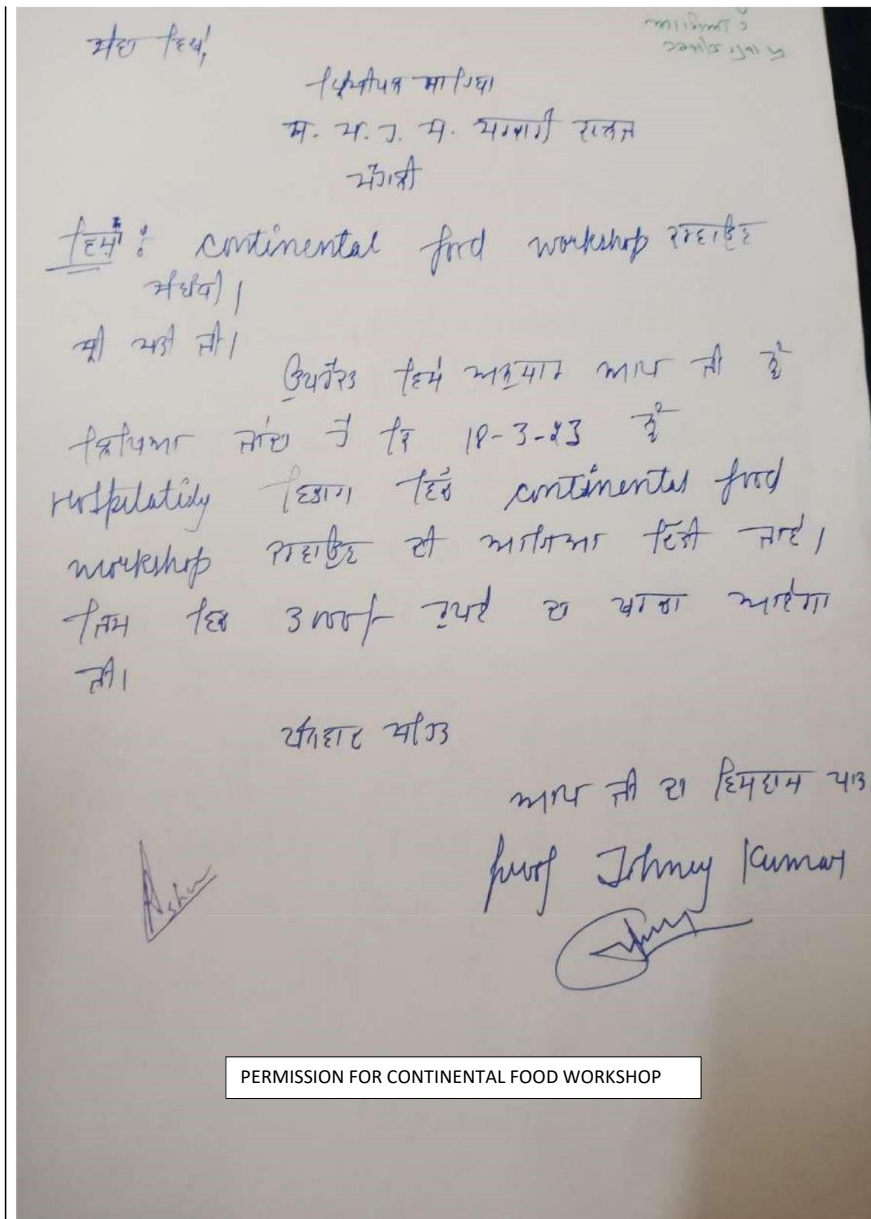 ਸੇਵਾ ਵਿਖੇ,
ਪ੍ਰਿੰਸੀਪਲ ਸਾਹਿਬਾ
ਸ. ਸਰਕਾਰੀ ਕਾਲਜ
ਵਿਸ਼ਾ: continental food workshop ਕਰਵਾਉਣ
ਸੰਬੰਧੀ।
ਸ੍ਰੀ ਮਤੀ ਜੀ।
ਉਪਰੋਕਤ ਵਿਸ਼ੇ ਅਨੁਸਾਰ ਆਪ ਜੀ ਨੂੰ
ਜਾਂਦਾ ਹੈ ਕਿ 18-3-23 ਨੂੰ
Hospilatidy ਵਿਭਾਗ ਵਿੱਚ continental food
workshop ਕਰਵਾਉਣ ਦੀ ਆਗਿਆ ਦਿੱਤੀ ਜਾਵੇ।
ਜਿਸ ਵਿਚ 3000/- ਰੁਪਏ ਦਾ ਖਰਚਾ ਆਵੇਗਾ
ਜੀ।
ਧੰਨਵਾਦ ਸਹਿਤ
ਆਪ ਜੀ ਦਾ ਵਿਸ਼ਵਾਸ ਪਾਤਰ
Prof Johney Kumar
PERMISSION FOR CONTINENTAL FOOD WORKSHOP